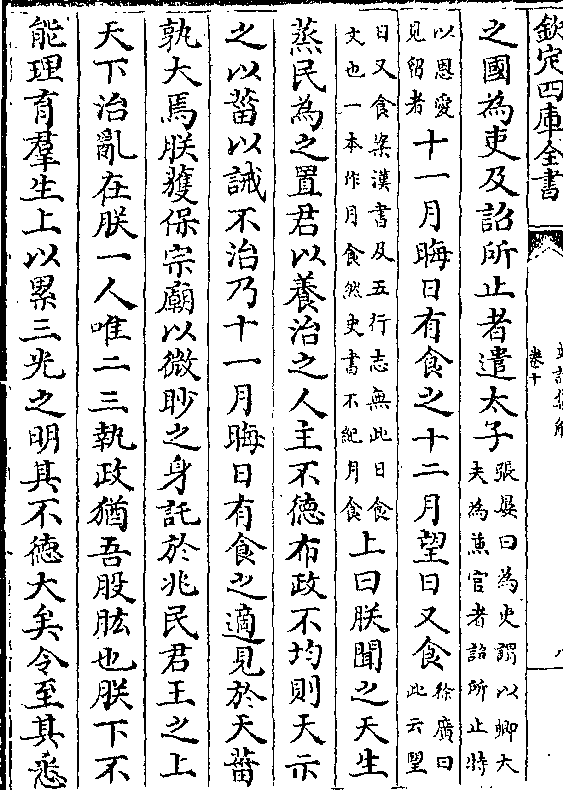 欽定四庫全書
卷十
八
之國為吏及詔所止者遣太子張晏曰為吏謂以卿大夫為兼官者詔所止特
以恩愛見留者十一月晦日有食之十二月望日又食徐廣曰此云望
日又食案漢書及五行志無此日食文也一本作月食然史書不紀月食上曰朕聞之天生
蒸民為之置君以養治之人主不德布政不均則天示
之以菑以誡不治乃十一月晦日有食之適見於天菑
孰大焉朕獲保宗廟以微眇之身託於兆民君王之上
天下治亂在朕一人唯二三執政猶吾股肱也朕下不
能理育羣生上以累三光之明其不德大矣令至其悉